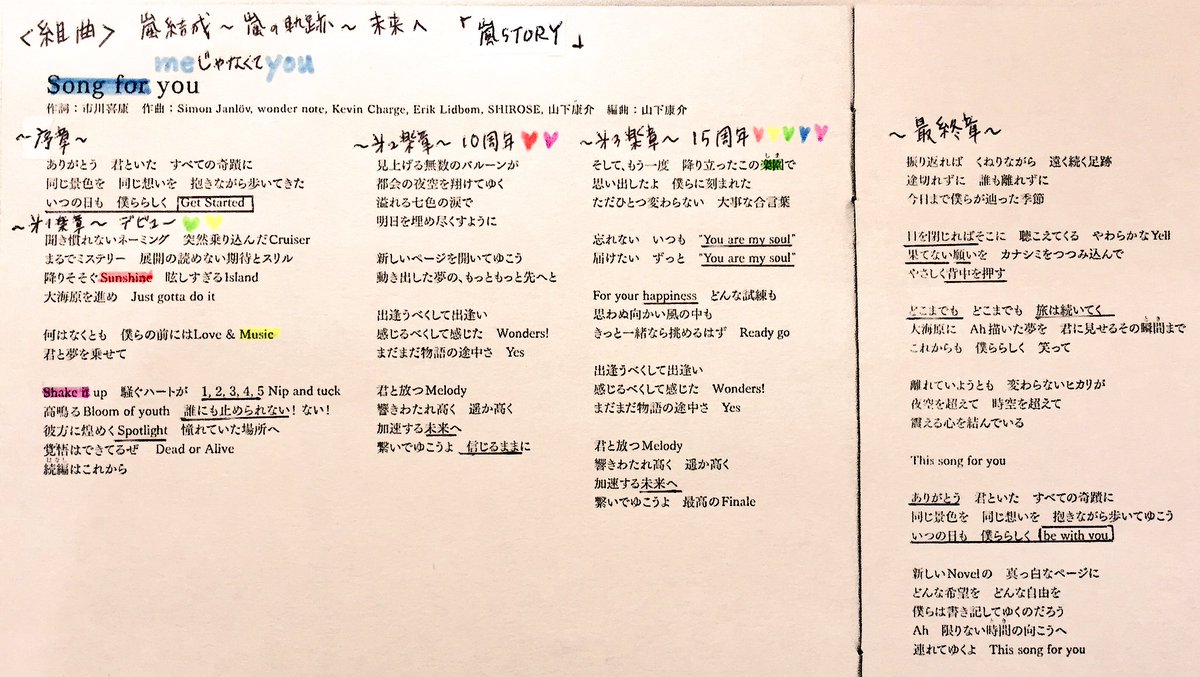 <組曲> 嵐結成～嵐の軌跡～未来へ 「嵐STORY」
meじゃなくてyou
Song for you
作詞：市川喜康　作曲：Simon Janlöv, wonder note, Kevin Charge, Erik Lidbom, SHIROSE, 山下康介　編曲：山下康介
～序章～
ありがとう　君といた　すべての奇蹟に
同じ景色を　同じ想いを　抱きながら歩いてきた
いつの日も　僕らしく　Get Started
～第1楽章～ デビュー
聞き慣れないネーミング　突然乗り込んだCruiser
まるでミステリー　展開の読めない期待とスリル
降りそそぐSunshine　眩しすぎるIsland
大海原を進め　Just gotta do it
何はなくとも　僕らの前にはLove & Music
君と夢を乗せて
Shake it up　騒ぐハートが　1, 2, 3, 4, 5 Nip and tuck
高鳴るBloom of youth　誰にも止められない！ ない！
彼方に煌めくSpotlight　憧れていた場所へ
覚悟はできてるぜ　Dead or Alive
続編はこれから
はなし
～第2楽章～ 10周年
見上げる無数のバルーンが
都会の夜空を翔けてゆく
溢れる七色の涙で
明日を埋め尽くすように
新しいページを開いてゆこう
動き出した夢の、もっともっと先へと
出逢うべくして出逢い
感じるべくして感じた　Wonders!
まだまだ物語の途中さ　Yes
君と放つMelody
響きわたれ高く　遥か高く
加速する未来へ
繋いでゆこうよ　信じるままに
～第3楽章～ 15周年
そして、もう一度　降り立ったこの楽園で
しま
思い出したよ　僕らに刻まれた
ただひとつ変わらない　大事な合言葉
忘れない　いつも　"You are my soul"
届けたい　ずっと　"You are my soul"
For your happiness　どんな試練も
思わぬ向かい風の中も
きっと一緒なら挑めるはず　Ready go
出逢うべくして出逢い
感じるべくして感じた　Wonders!
まだまだ物語の途中さ　Yes
君と放つMelody
響きわたれ高く　遥か高く
加速する未来へ
繋いでゆこうよ　最高のFinale
～最終章～
振り返れば　くねりながら　遠く続く足跡
途切れずに　誰も離れずに
今日まで僕らが辿った季節
目を閉じればそこに　聴こえてくる　やわらかなYell
果てない願いを　カナシミをつつみ込んで
やさしく背中を押す
どこまでも　どこまでも　旅は続いてく
大海原に　Ah 描いた夢を　君に見せるその瞬間まで
とき
これからも　僕ららしく　笑って
離れていようとも　変わらないヒカリが
夜空を超えて　時空を超えて
震える心を結んでいる
This song for you
ありがとう　君といた　すべての奇蹟に
同じ景色を　同じ想いを　抱きながら歩いてゆこう
いつの日も　僕ららしく　be with you
新しいNovelの　真っ白なページに
どんな希望を　どんな自由を
僕らは書き記してゆくのだろう
Ah　限りない時間の向こうへ
とき
連れてゆくよ　This song for you